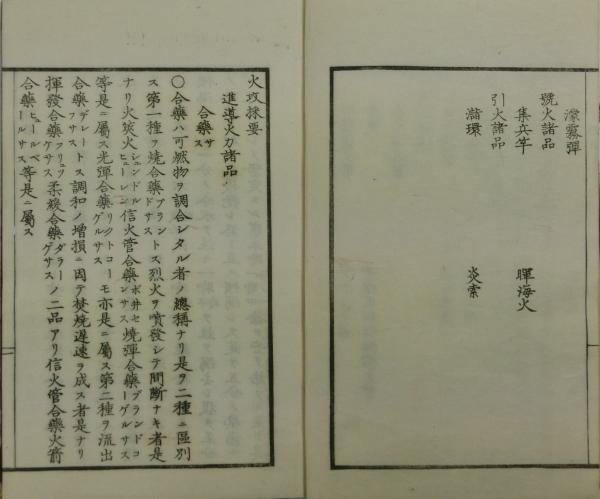 濛霧彈
號火諸品
集兵竿　暉海火
引火諸品
瀦環　炎索
火攻採要
進導火力諸品
合藥サス
〇合藥ハ可燃物ヲ調合シタル者ノ總稱ナリ是ヲ二種ニ區別
ス第一種ヲ燒合藥ブラントサスドス烈火ヲ噴發シテ間斷ナキ者是
ナリ火熒火シュンドルヒューレン信火管合藥ボ井センサス燒彈合藥ブランドコーゲルサス
等是ニ屬ス光彈合藥リクトコーゲルサスモ亦是ニ屬ス第二種ヲ流出
合藥デレーフサストス調和ノ增損ニ因テ焚燒遲速ヲ成ス者是ナリ
揮發合藥フリュフケサス柔緩合藥ダラーゲサスノ二品アリ信火管合藥火箭
合藥ヒュールペールサス等是ニ屬ス